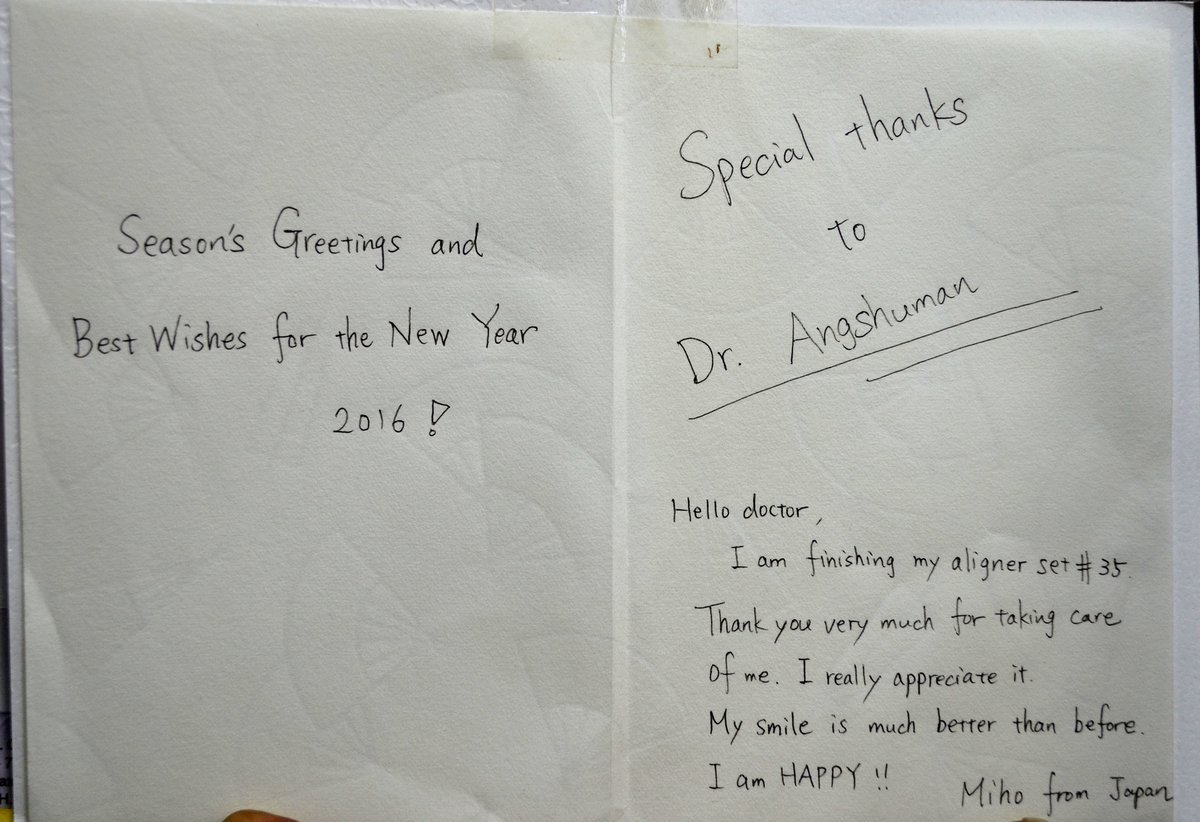 Season's Greetings and
Best Wishes for the New Year
2016 !
Special thanks
to
Dr. Angshuman
Hello doctor,
I am finishing my aligner set #35.
Thank you very much for taking care
of me. I really appreciate it.
My smile is much better than before.
I am HAPPY !!
Miho from Japan